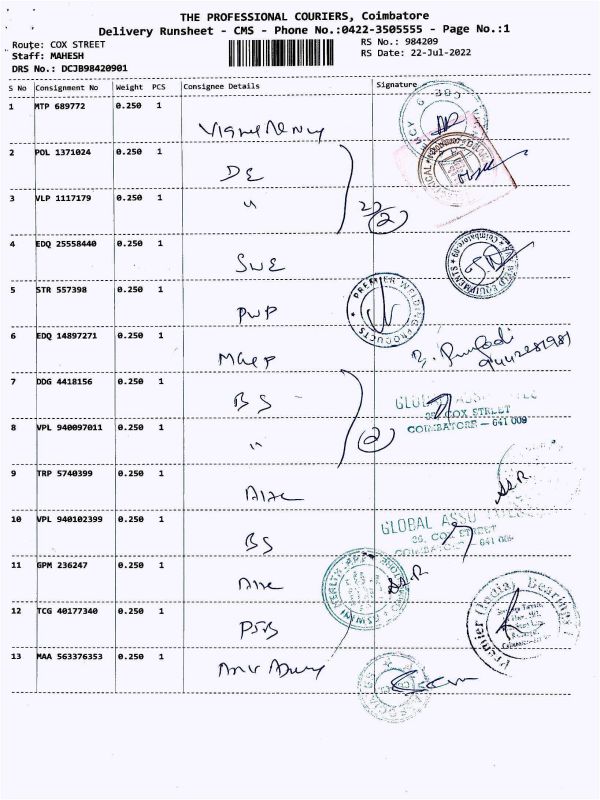 THE PROFESSIONAL COURIERS, Coimbatore
Delivery Runsheet - CMS - Phone No.:0422-3505555 - Page No.:1
Route: COX STREET
RS No.: 984209
Staff: MAHESH
RS Date: 22-Jul-2022
DRS No.: DCJB98420901
S No Consignment No Weight PCS Consignee Details Signature
1 MTP 689772 0.250 1
2 POL 1371024 0.250 1 DE
3 VLP 1117179 0.250 1 "
4 EDQ 25558440 0.250 1 SWE
5 STR 557398 0.250 1 PWP
PREMIER WELDING PRODUCTS
6 EDQ 14897271 0.250 1
7 DDG 4418156 0.250 1 BS
36, COX STREET
COIMBATORE - 641 009
8 VPL 940097011 0.250 1 " 2
9 TRP 5740399 0.250 1 SS.R
10 VPL 940102399 0.250 1 BS
GLOBAL ASSO
36, COX STREET
COIMBATORE - 641 009
11 GPM 236247 0.250 1 SS.R
12 TCG 40177340 0.250 1 PSB
Premier (India) Bearings
13 MAA 563376353 0.250 1